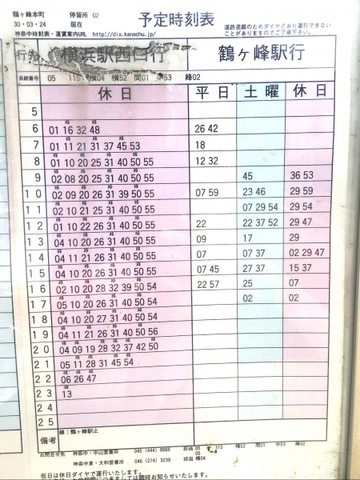 鶴ヶ峰本町 停留所 02
30・03・24 現在
神奈中時刻表・運賃案内URL http://dia.kanachu.jp/
予定時刻表
道路混雑のためダイヤどおり運行できない
ことがありますのでご了承下さい。
行先 横浜駅西口行 鶴ヶ峰駅行
05 115 横04 横52 間01 中53 峰02
休日 平日 土曜 休日
5
6 01 16 32 48 26 42
7 01 11 21 31 37 45 53 18
8 01 10 20 25 31 40 50 55 12 32
9 02 08 20 25 31 40 50 55 45 36 53
10 02 09 20 26 31 39 50 55 07 59 23 46 29 59
11 02 10 21 25 31 40 50 55 07 29 54 29 54
12 01 10 22 26 31 40 50 55 22 22 37 52 29 47
13 04 10 21 25 31 40 50 55 09 17 29
14 04 10 20 26 31 40 50 55 07 07 37 02 29 47
15 04 10 20 26 31 40 50 55 07 45 27 37 15 37
16 02 10 20 28 32 39 50 54 22 57 25 07
17 05 10 20 26 31 40 50 54 02 02
18 04 10 20 27 31 40 50 54
19 04 11 20 21 26 31 40 50 56
20 04 09 19 28 32 37 42 50
21 05 11 28 31 45 54
22 06 26 47
23 13
24
25
備考 峰：鶴ヶ峰駅止
お問合せ先 神奈川中央・中山営業所 045 (444) 8866
神奈川中東・大和営業所 046 (274) 3239
祝日は休日ダイヤで運行いたします。